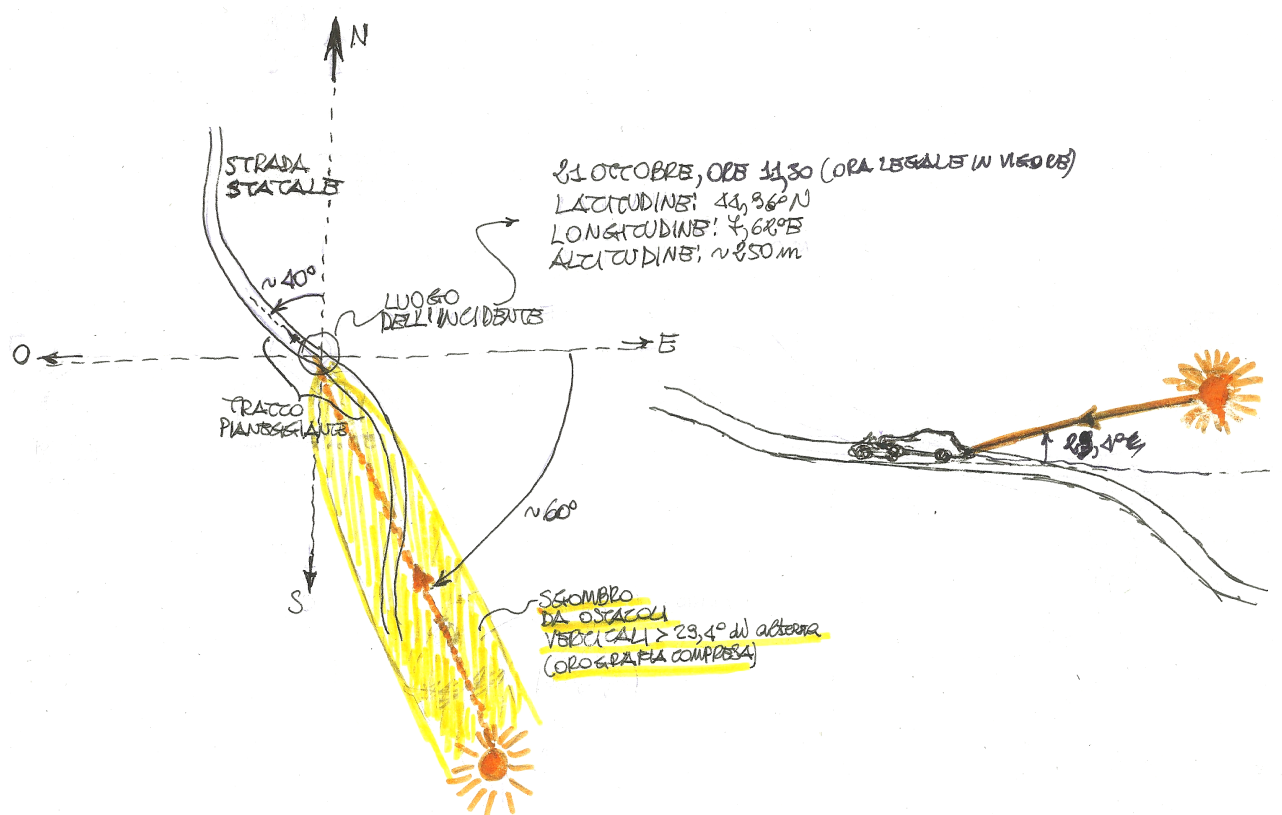 N
STRADA
STATALE
21 OTTOBRE, ORE 11,30 (ORA LEGALE IN VIGORE)
LATITUDINE: 44,96° N
LONGITUDINE: 7,62° E
ALTITUDINE: ~250 m
~40°
LUOGO
DELL'INCIDENTE
O
E
TRATTO
PIANEGGIANTE
29,4°
~60°
S
SGOMBRO
DA OSTACOLI
VERTICALI > 29,4° di altezza
(OROGRAFIA COMPRESA)